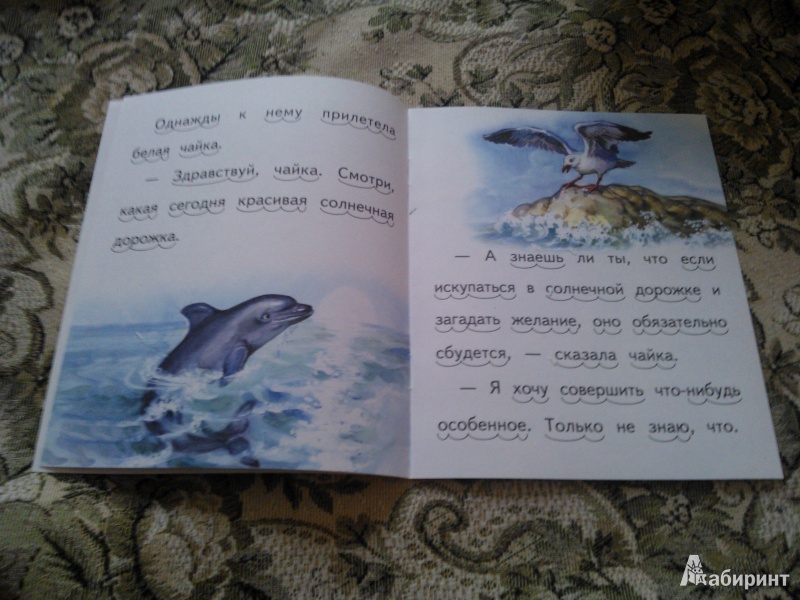 Однажды к нему прилетела
белая чайка.
— Здравствуй, чайка. Смотри,
какая сегодня красивая солнечная
дорожка.
— А знаешь ли ты, что если
искупаться в солнечной дорожке и
загадать желание, оно обязательно
сбудется, — сказала чайка.
— Я хочу совершить что-нибудь
особенное. Только не знаю, что.
Лабиринт